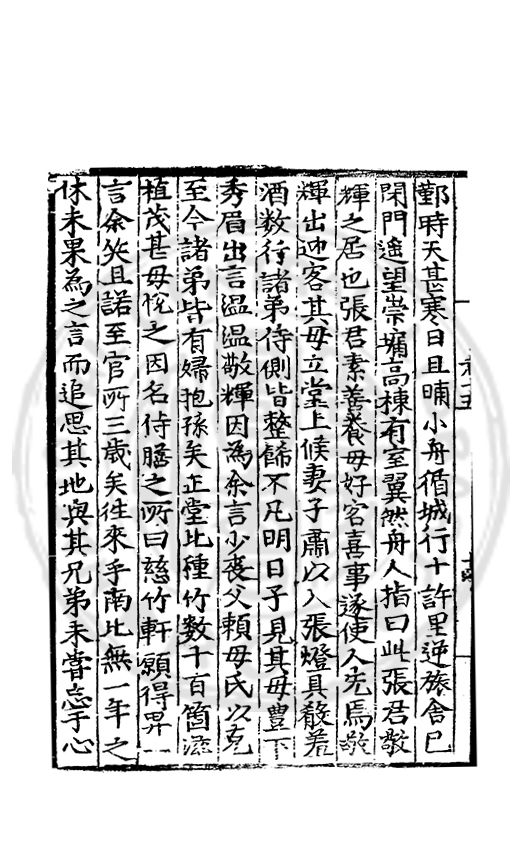 鄞時天甚寒日且晡小舟循城行十許里逆旅舍已
閉門遙望崇墉高棟有室翼然舟人指曰此張君敬
輝之居也張君素善養母好客喜事遂使人先焉敬
輝出迎客其母立堂上候妻子肅以入張燈具殽羞
酒数行諸弟侍側皆整餙不凡明日予見其母豊下
秀眉出言温温敬輝因為余言少喪父頼母氏以克
至今諸弟皆有婦抱孫矣正堂北種竹数十百箇滋
植茂甚母恱之因名侍膳之所曰慈竹軒願得畀一
言余笑且諾至官所三歳矣往來乎南北無一年之
休未果為之言而追思其地與其兄弟未嘗忘于心